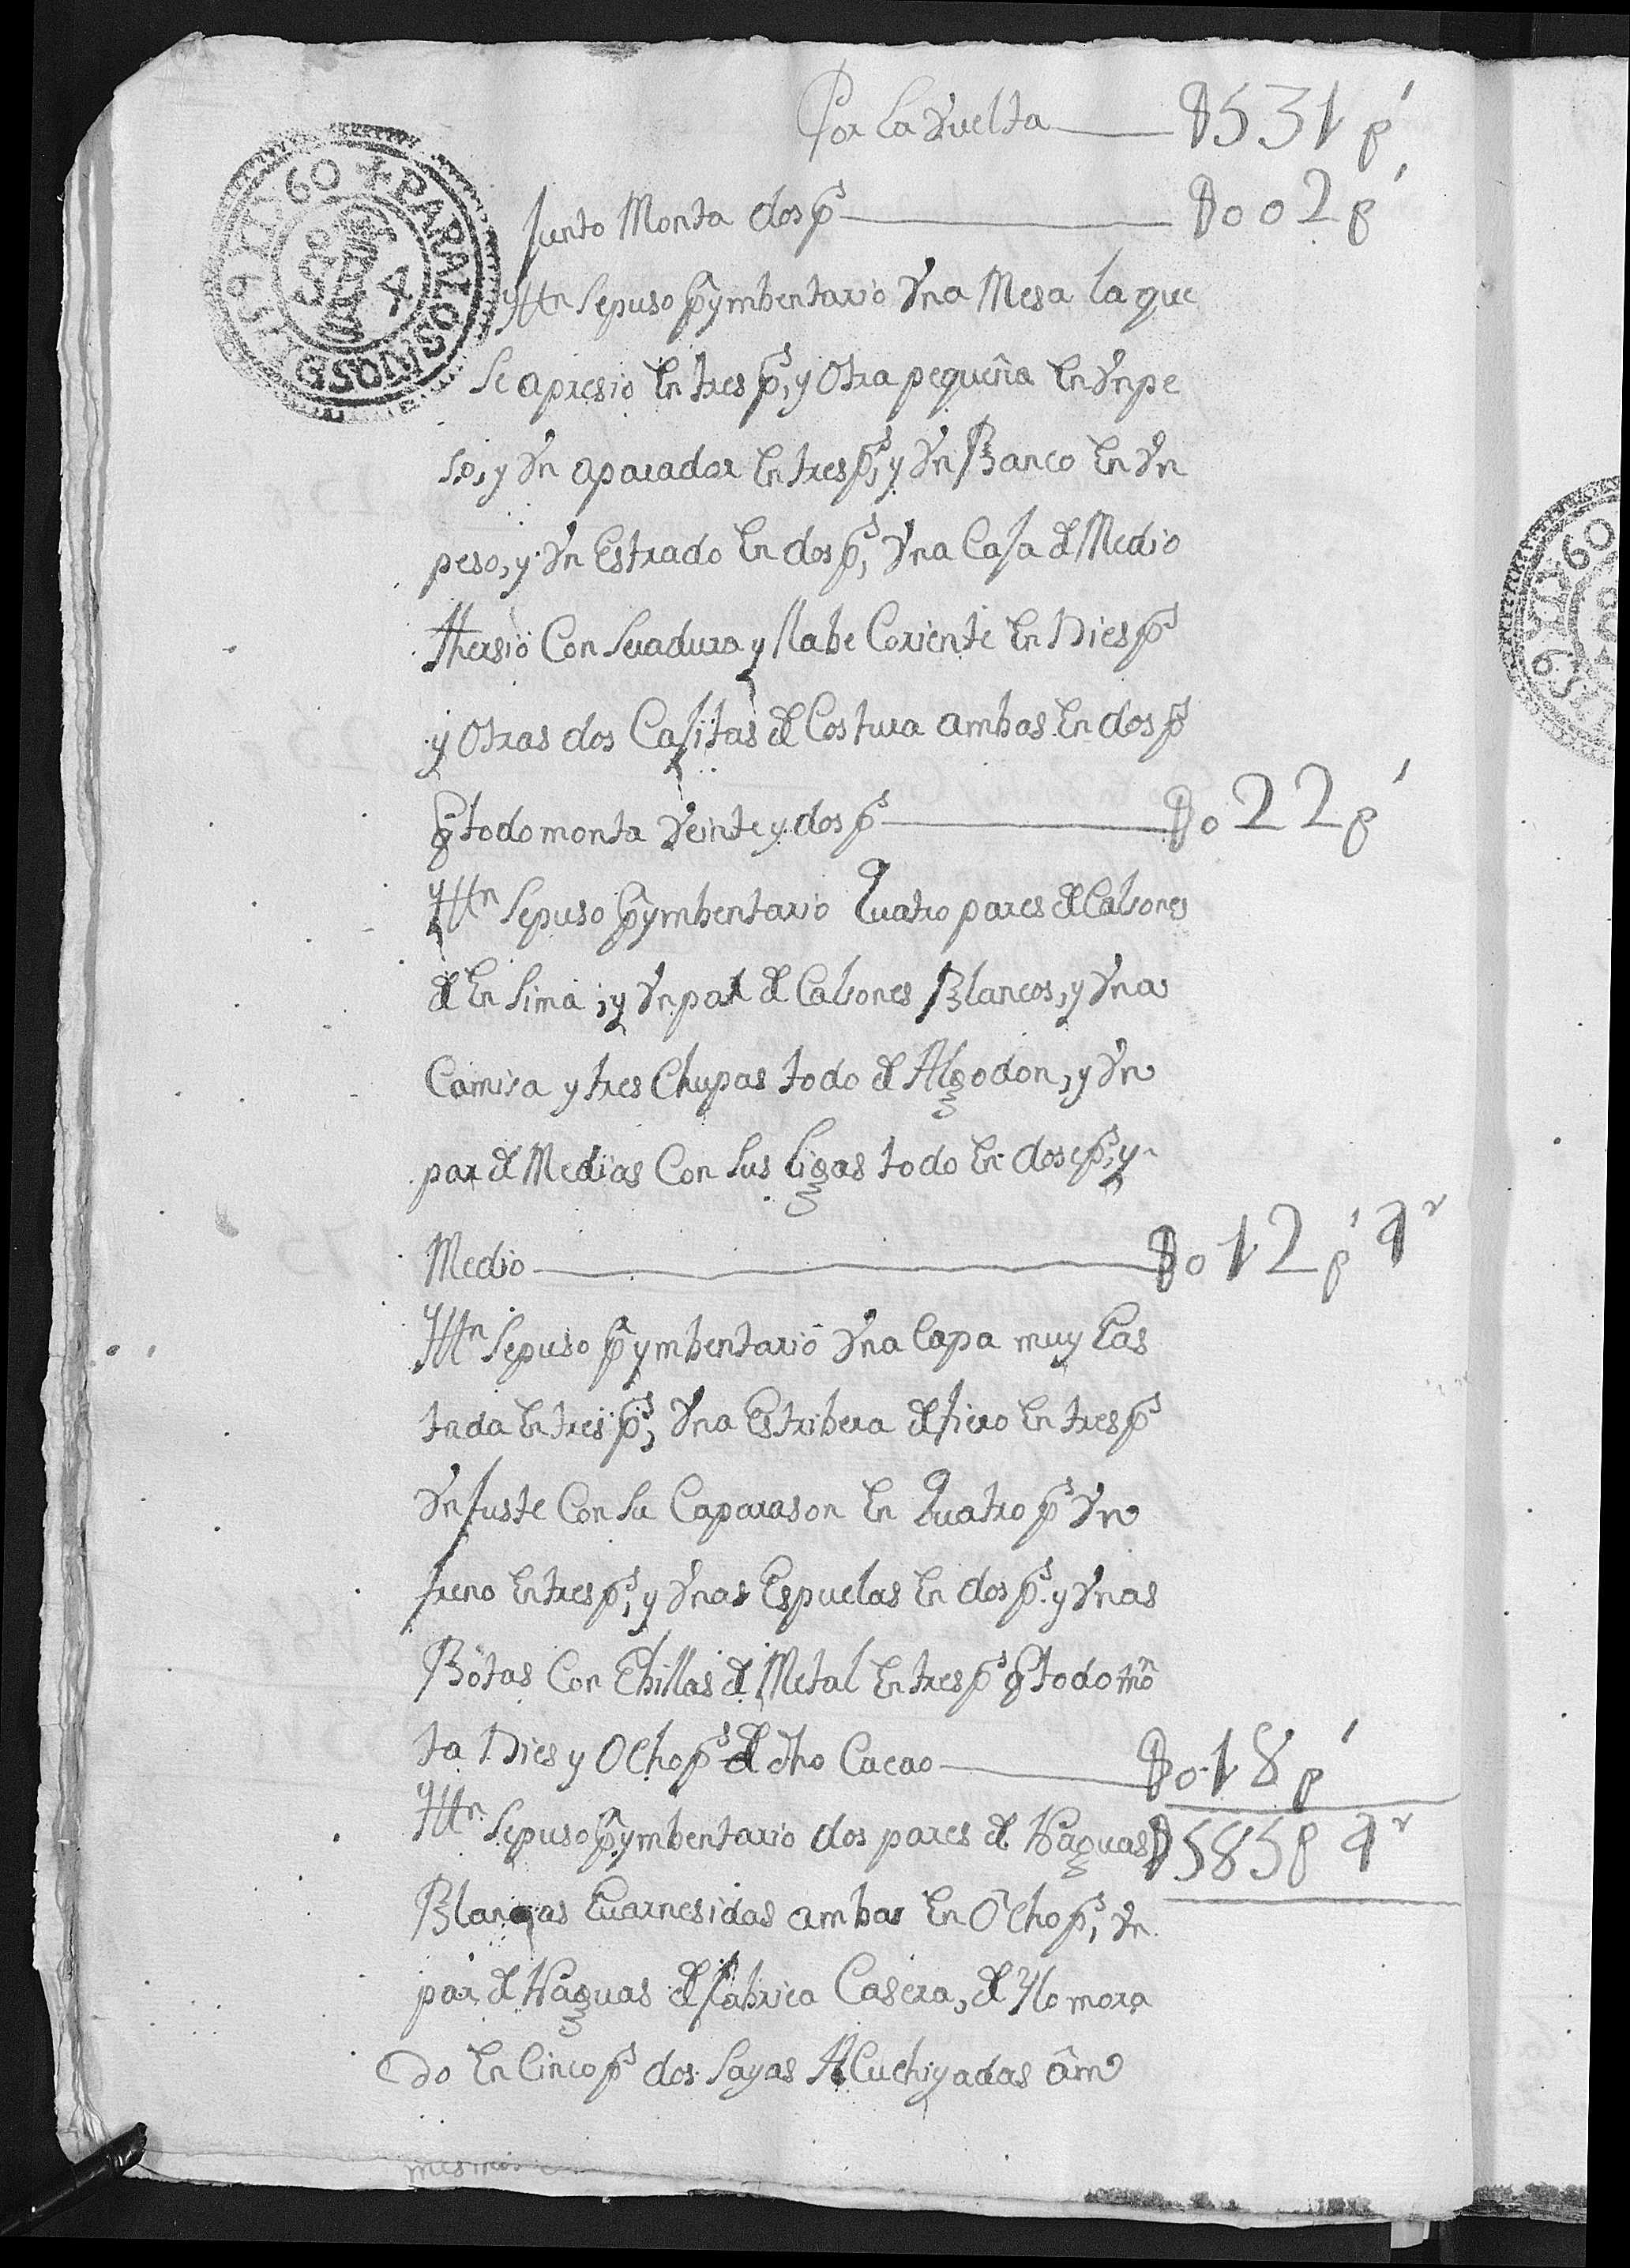 Por la Vuelta $531 ps
Junto Monta dos ps $002 ps
Yttn Sepuso Pr ymbentario Vna Mesa la que
Se apresio En tres ps, y Otra pequeña En Vn pe
so, y Vn aparador En tres ps, y Vn Banco En Vn
peso, y Vn Estrado En dos ps, Vna Caja de Medio
thersio Con Seradura y llabe Coriente En Dies ps
y Otras dos Cajitas de Costura ambas En dos ps
q todo monta Veinte y dos ps $022 ps
Yttn Sepuso Pr ymbentario Quatro pares de Calsones
de En Sima; y Vn par de Calsones Blancos, y Vna
Camisa y tres Chupas todo de Algodon, y Vn
par de Medias Con Sus Ligas todo En dose ps, y
Medio $012 ps 4r
Yttn Sepuso Pr ymbentario Vna Capa muy Gas
tada En tres ps, Vna Estribera de fiero En tres ps
Vn fuste Con Su Caparason En Quatro ps Vn
freno En tres ps, y Vnas Espuelas En dos ps y Vnas
Botas Con Ebillas de Metal En tres ps q todo mon
ta Dies y Ocho ps de dho Cacao $018 ps
Yttn Sepuso Pr ymbentario dos pares de Naguas $585 p 4r
Blancas Guarnesidas ambas En Ocho ps, Vn
par de Naguas de fabrica Casera, de Ylo mora
do En Cinco ps dos Sayas ACuchiyadas am
PARALOSAÑOSD